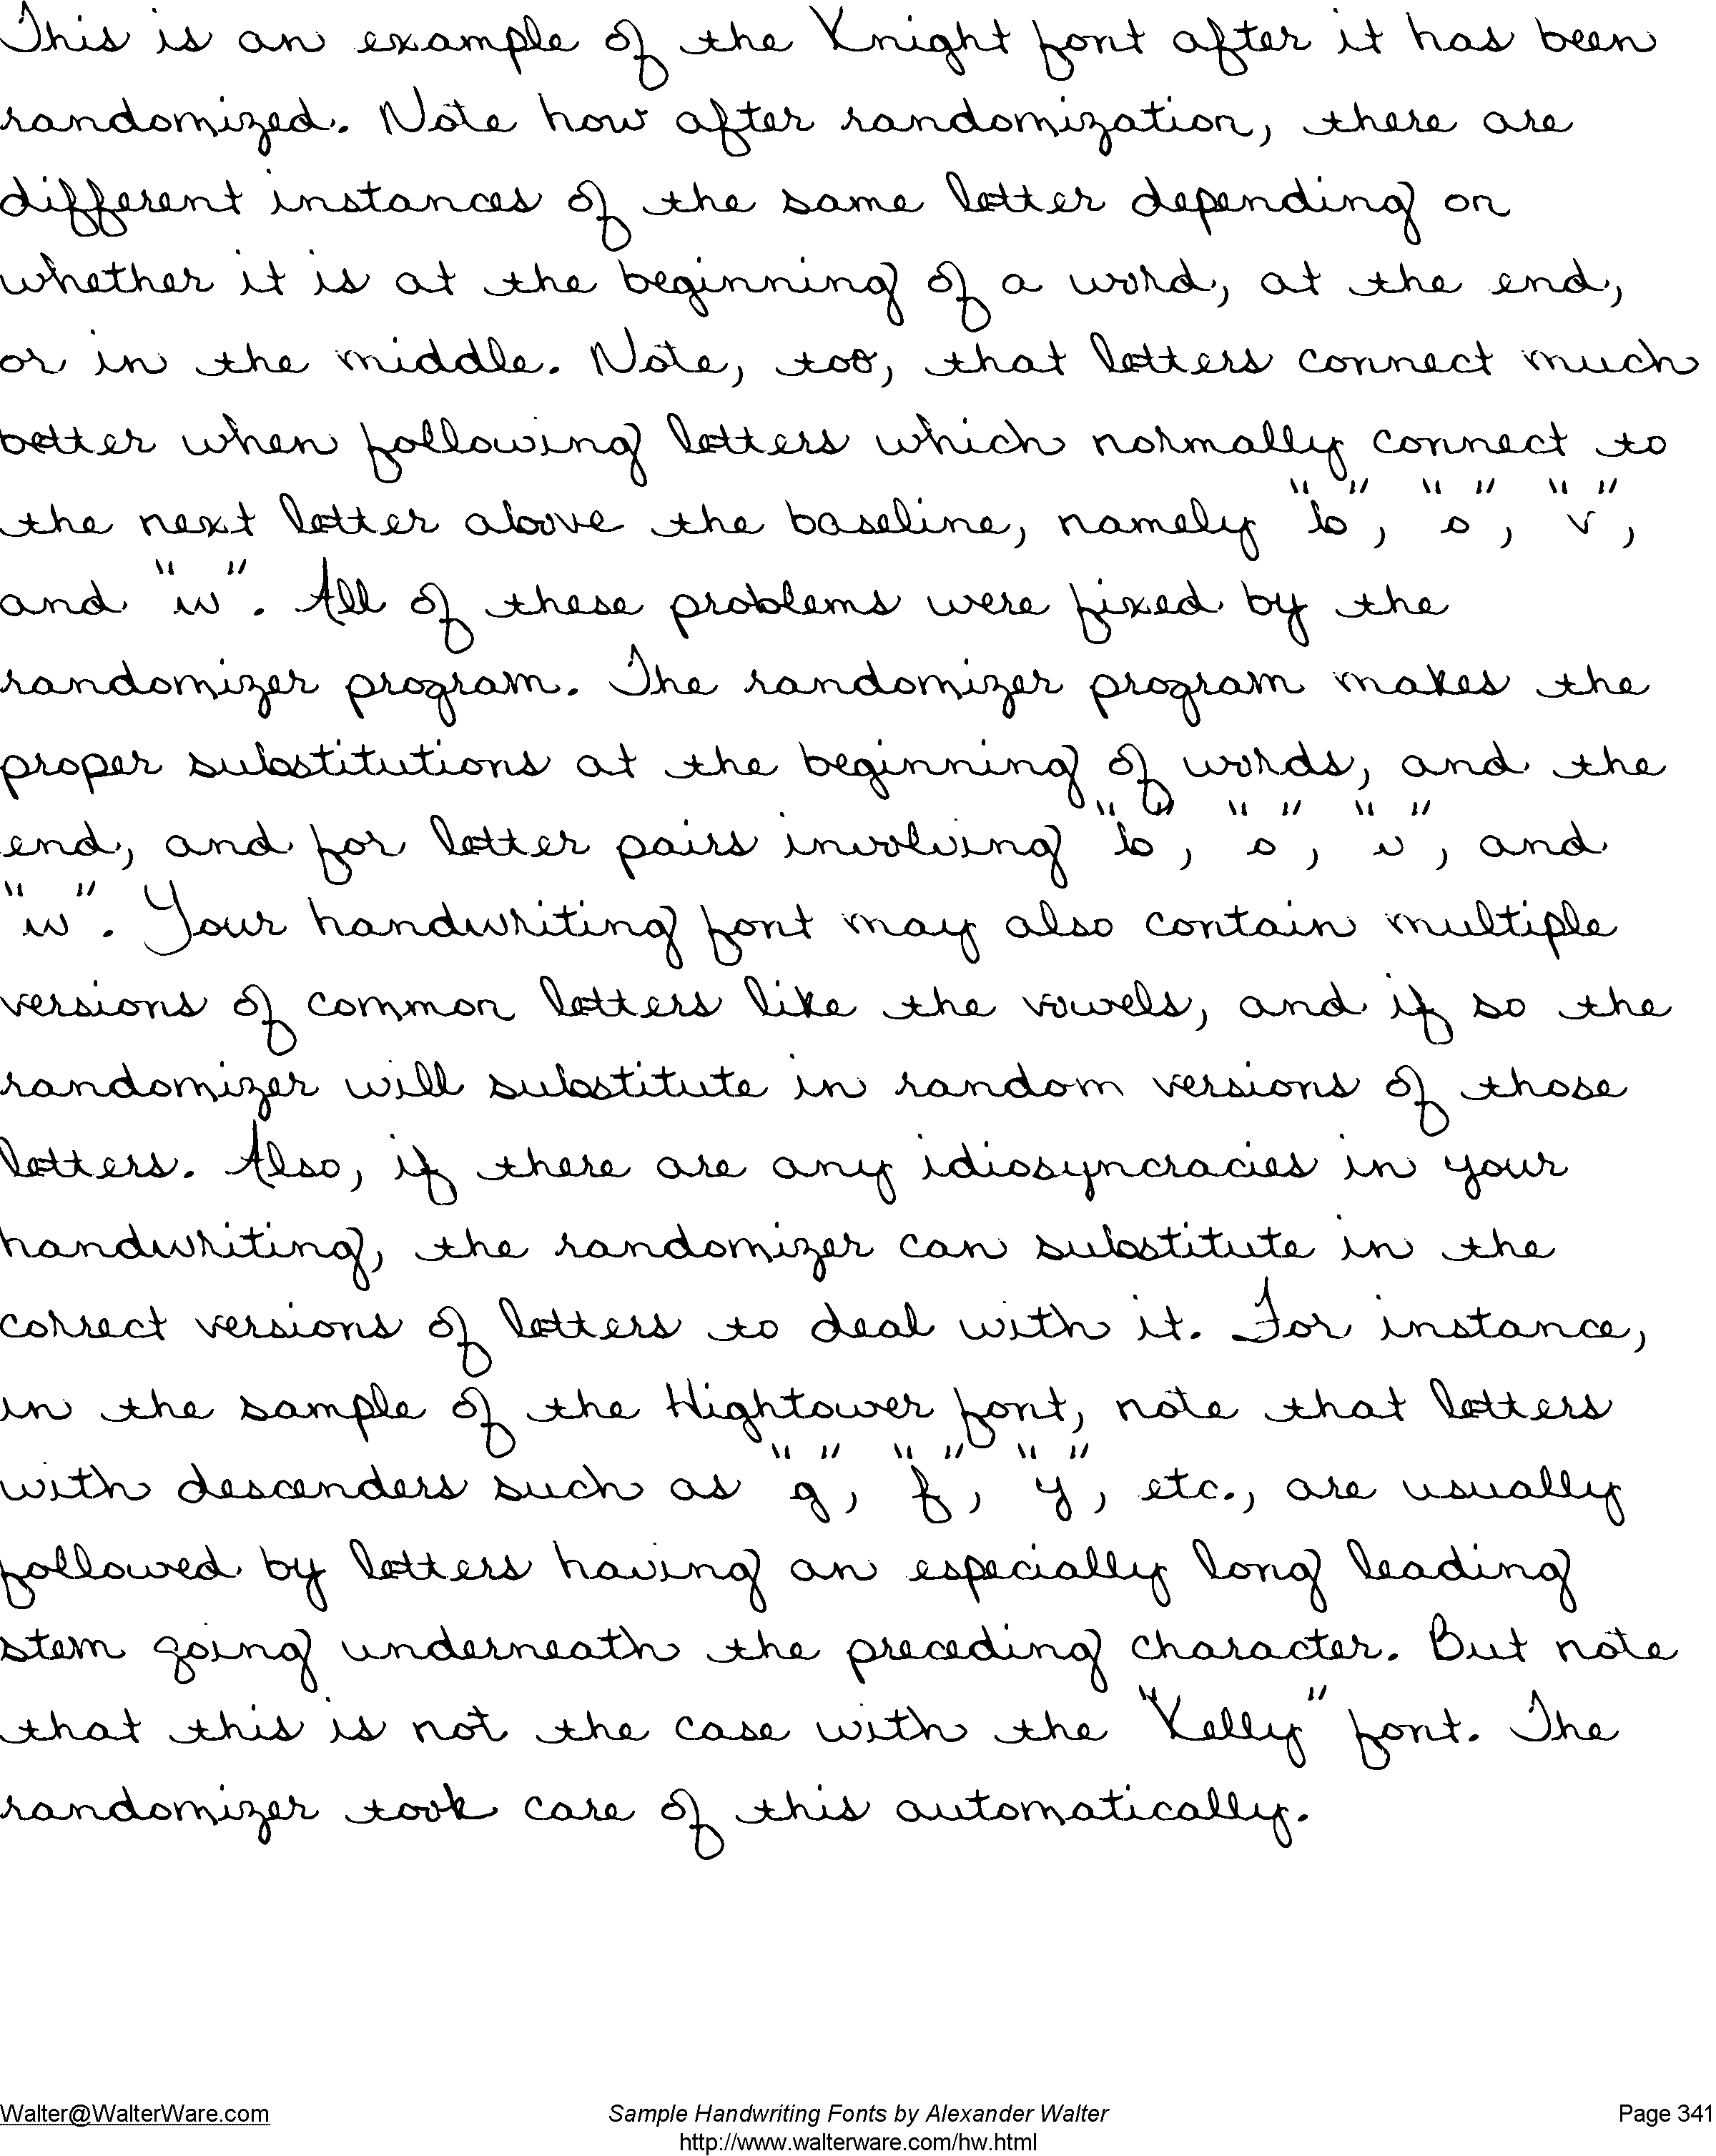 This is an example of the Knight font after it has been
randomized. Note how after randomization, there are
different instances of the same letter depending on
whether it is at the beginning of a word, at the end,
or in the middle. Note, too, that letters connect much
better when following letters which normally connect to
the next letter above the baseline, namely "b", "o", "v",
and "w". All of these problems were fixed by the
randomizer program. The randomizer program makes the
proper substitutions at the beginning of words, and the
end, and for letter pairs involving "b", "o", "v", and
"w". Your handwriting font may also contain multiple
versions of common letters like the vowels, and if so the
randomizer will substitute in random versions of those
letters. Also, if there are any idiosyncracies in your
handwriting, the randomizer can substitute in the
correct versions of letters to deal with it. For instance,
in the sample of the Hightower font, note that letters
with descenders such as "g", "f", "y", etc., are usually
followed by letters having an especially long leading
stem going underneath the preceding character. But note
that this is not the case with the "Kelly" font. The
randomizer took care of this automatically.
Walter@WalterWare.com Sample Handwriting Fonts by Alexander Walter Page 341
http://www.walterware.com/hw.html